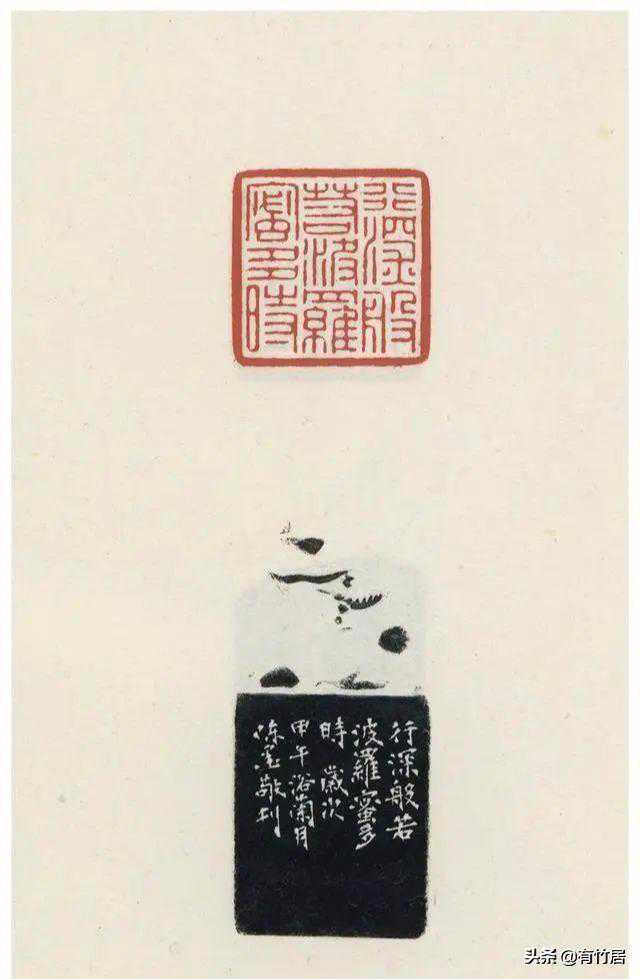 行深般
若波羅
蜜多時
行深般若
波羅蜜多
時 歲次
甲午浴蘭月
陳敬刊
头条 @有竹居